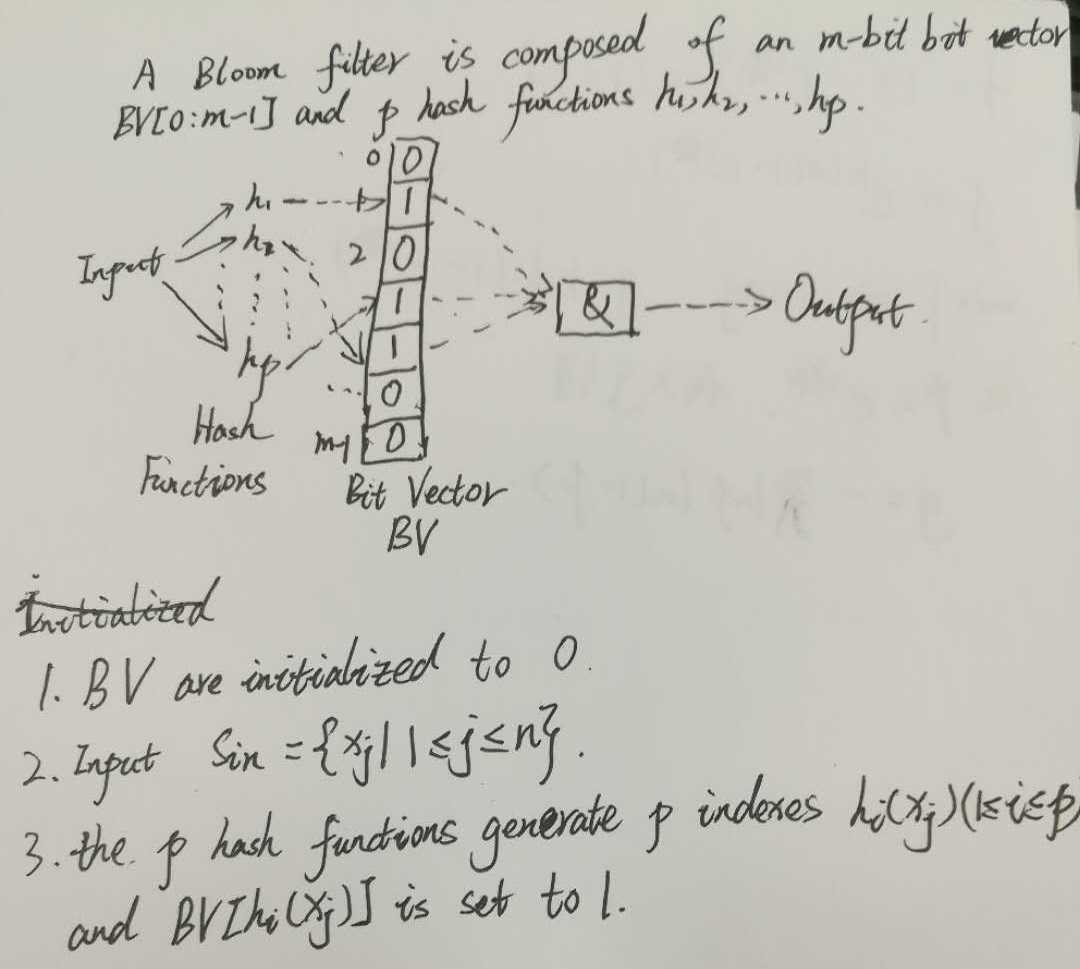 A Bloom filter is composed of an m-bit bit vector
BV[0:m-1] and p hash functions h₁, h₂, ..., hp.
0 0
h₁ 1 1
h₂ 2 0
Input 1 & Output
1
hp ... 0
Hash m-1 0
Functions Bit Vector
BV
Initialized
1. BV are initialized to 0.
2. Input Sin = {xj | 1≤j≤n}.
3. the p hash functions generate p indexes hi(xj)(1≤i≤p)
and BV[hi(xj)] is set to 1.